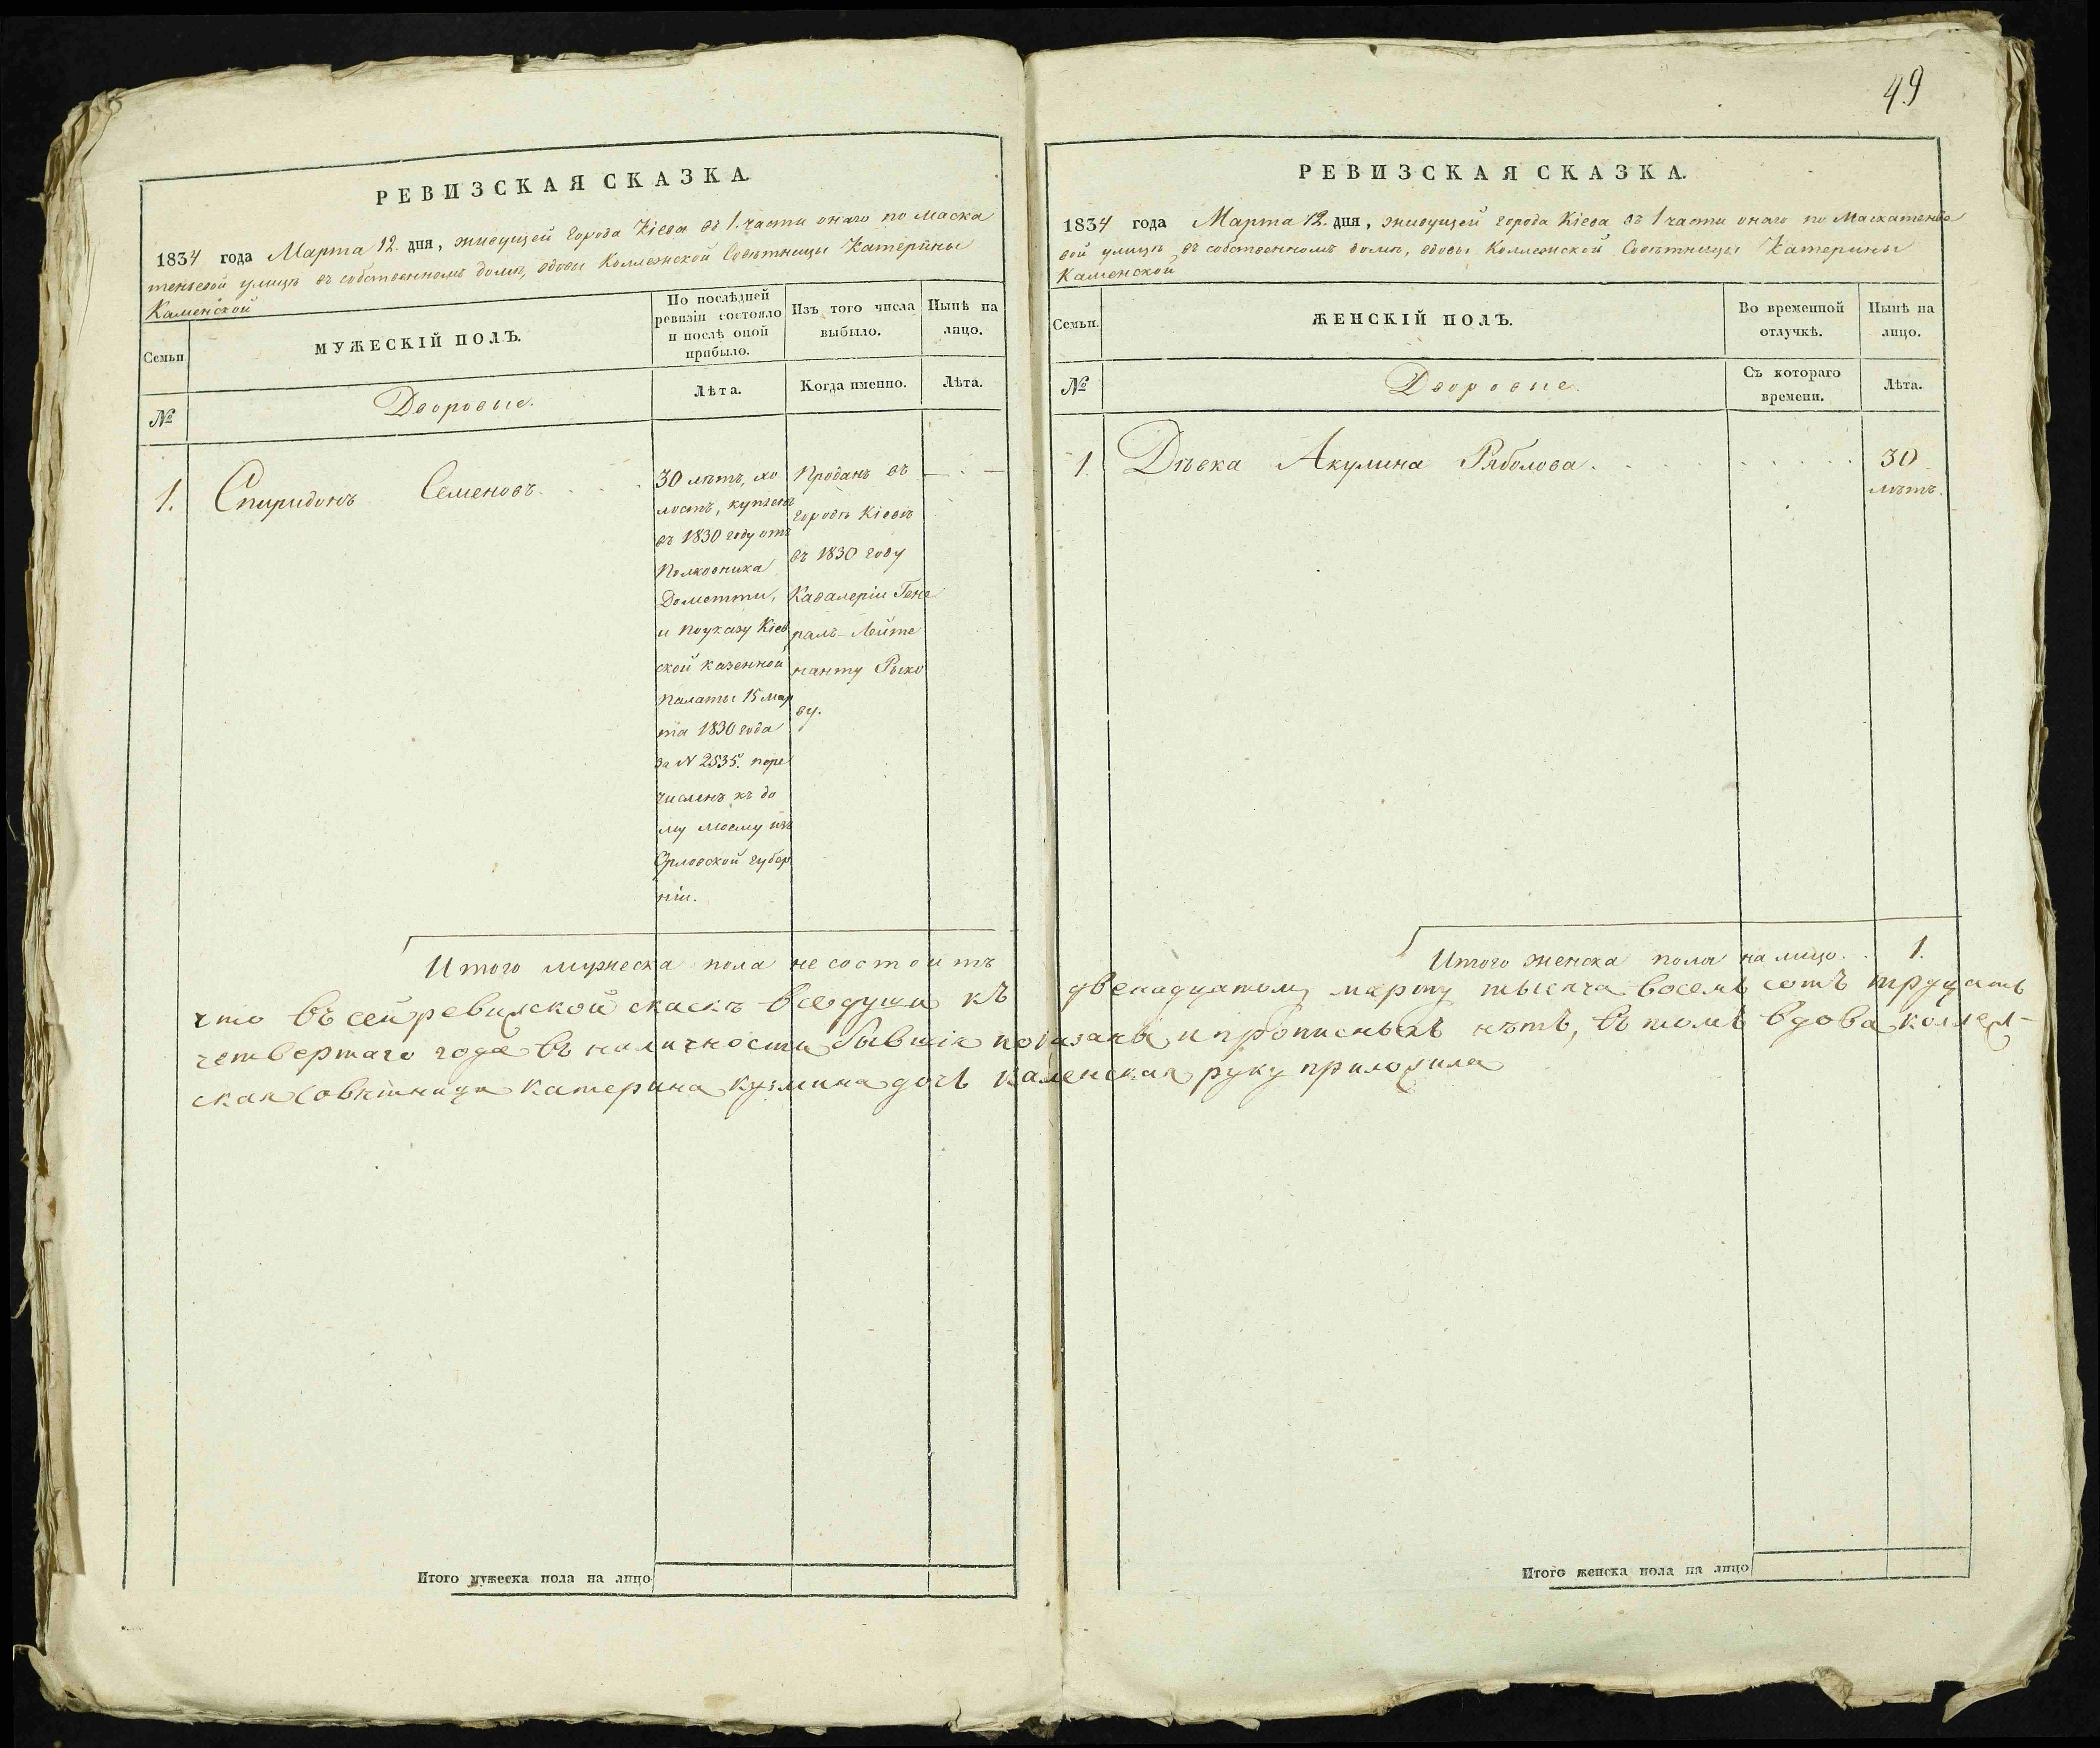 49
РЕВИЗСКАЯ СКАЗКА.
1834 года Марта 12. дня, живущей города Кіева въ 1. части онаго по Маска
теньевой улицѣ въ собственномъ домѣ, вдовы Коллежской Совѣтницы Катерины
Каменской
Семьи
МУЖЕСКІЙ ПОЛЪ.
По послѣдней
ревизіи состояло
и послѣ оной
прибыло.
Изъ того числа
выбыло.
Нынѣ на
лицо.
№
Дворовые.
Лѣта.
Когда именно.
Лѣта.
1.
Спиридонъ Семеновъ
30 лѣтъ, хо
лостъ, купленъ
въ 1830 году отъ
Полковника
Дометти,
и по указу Кіев
ской казенной
палаты 15 мар
та 1830 года
за N 2535. пере
численъ къ до
му моему изъ
Орловской губер
ніи.
Проданъ въ
городѣ Кіевѣ
въ 1830 году
Кавалеріи Гене
ралъ-Лейте
нанту Рыко
ву.
Итого мужеска пола не состоитъ
РЕВИЗСКАЯ СКАЗКА.
1834 года Марта 12. дня, живущей города Кіева въ 1 части онаго по Маскатенье
вой улицѣ въ собственномъ домѣ, вдовы Коллежской Совѣтницы Катерины
Каменской
Семьи.
ЖЕНСКІЙ ПОЛЪ.
Во временной
отлучкѣ.
Нынѣ на
лицо.
№
Дворовые.
Съ котораго
времени.
Лѣта.
1. Дѣвка Акулина Ряболова
30
лѣтъ.
Итого женска пола на лицо. 1.
что въ сей ревизской скаскѣ все души къ двенадцатому марту тысяча восемь сотъ тридцать
четвертаго года въ наличности бывшія показаны и прописныхъ нѣтъ, въ томъ вдова коллеж-
ская совѣтница катерина кузмина дочь каменская руку приложила
Итого мужеска пола на лицо
Итого женска пола на лицо